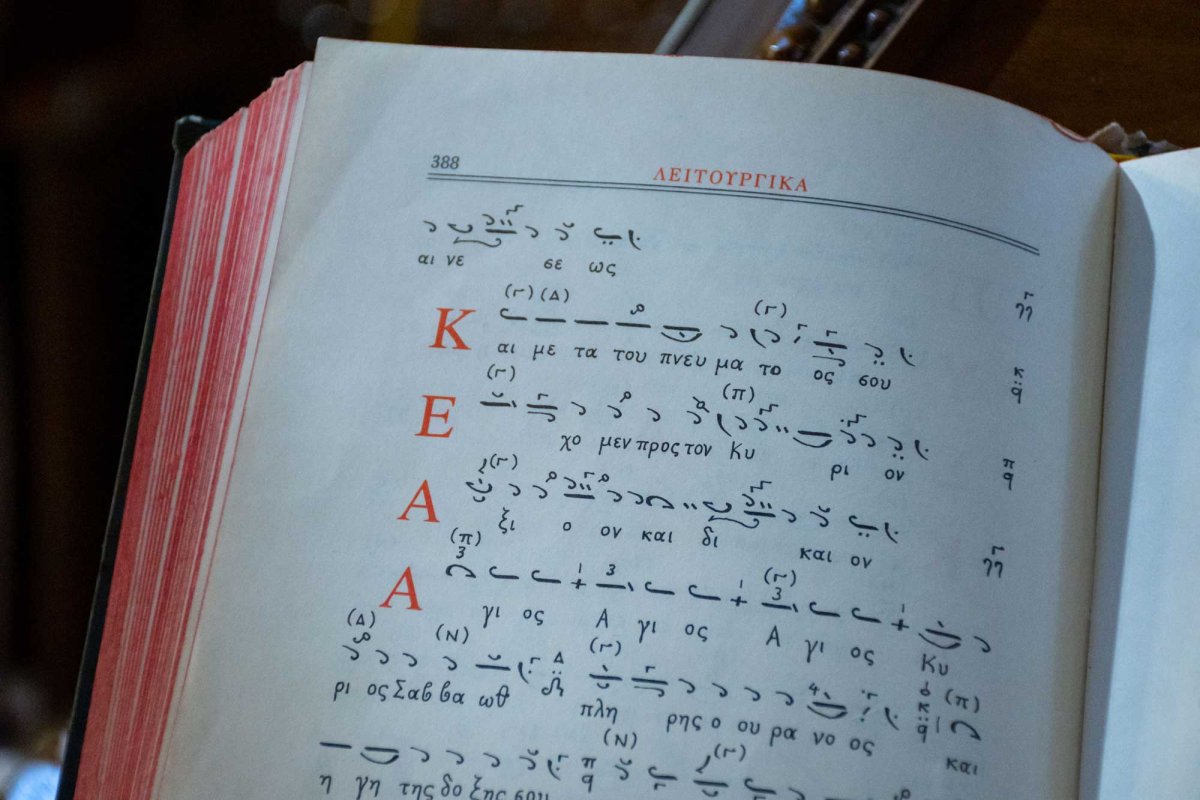 388 ΛΕΙΤΟΥΡΓΙΚΑ
αι νε σε ως
(Γ) (Δ) (Γ)
Και με τα του πνευ μα το ος σου
(Γ) (π)
Ε χο μεν προς τον Κυ ρι ον
(Γ)
Α ξι ο ον και δι και ον
(π) (Γ)
Α γι ος Α γι ος Α γι ος Κυ
(Δ) (Ν) (Γ) (π)
ρι ος Σαβ βα ωθ πλη ρης ο ου ρα νο ος και
(Ν) (Γ)
η γη της δο ξης σου